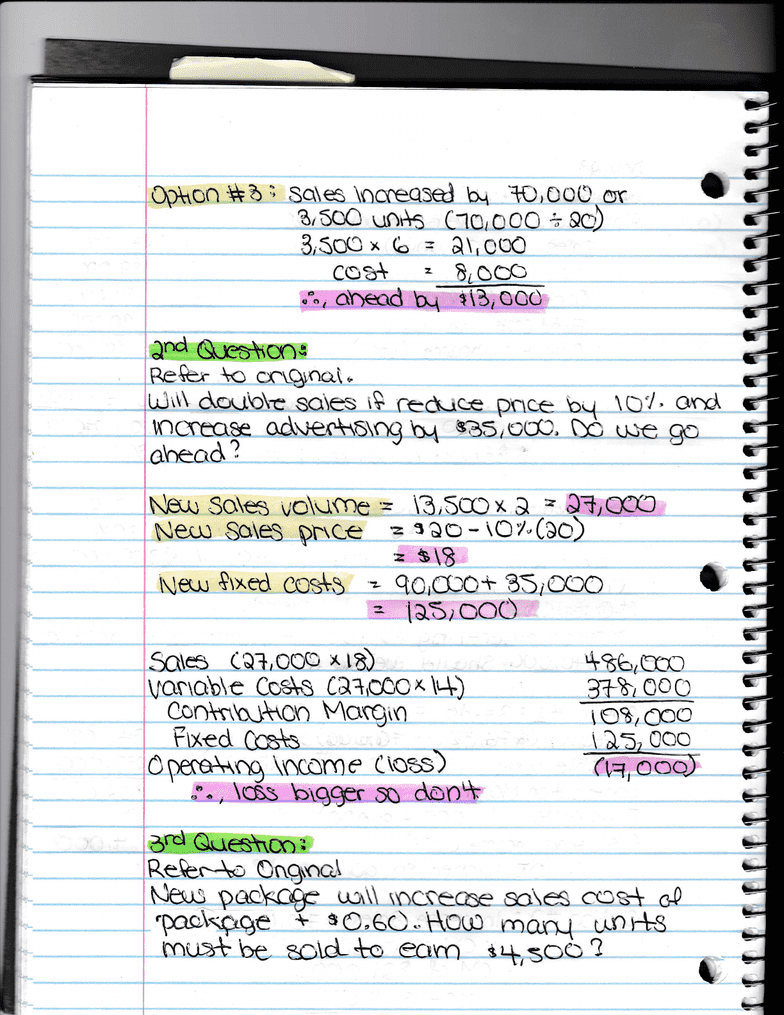 Option #3: Sales increased by 70,000 or
3,500 units (70,000 ÷ 20)
3,500 × 6 = 21,000
cost = 8,000
∴, ahead by $13,000
2nd Question:
Refer to original.
Will double sales if reduce price by 10% and
increase advertising by $35,000. Do we go
ahead?
New sales volume = 13,500 × 2 = 27,000
New sales price = $20 - 10% (20)
= $18
New fixed costs = 90,000 + 35,000
= 125,000
Sales (27,000 × 18) 486,000
Variable Costs (27,000 × 14) 378,000
Contribution Margin 108,000
Fixed Costs 125,000
Operating income (loss) (17,000)
∴, loss bigger so don't
3rd Question:
Refer to Original
New package will increase sales cost of
package + $0.60. How many units
must be sold to earn $4,500?